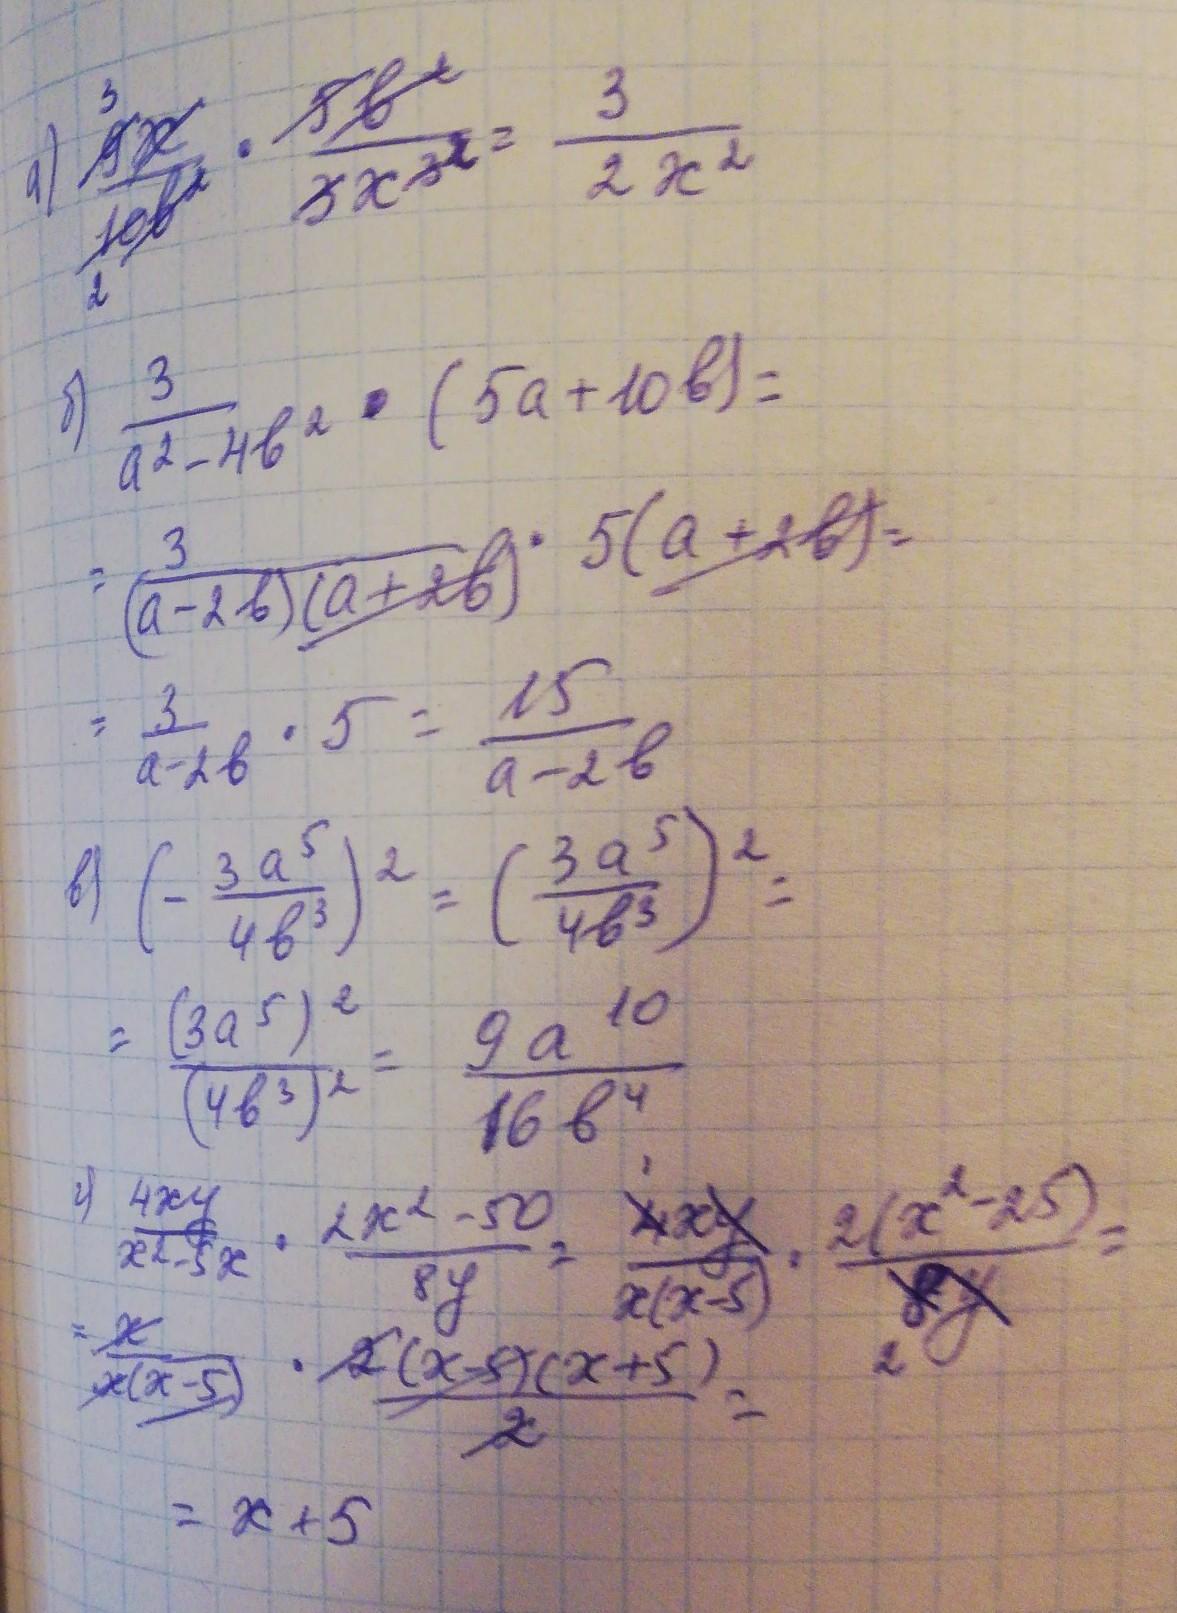 а) 9x/10b² · 5b²/3x³ = 3/2x²
б) 3/(a²-4b²) · (5a+10b) =
= 3/((a-2b)(a+2b)) · 5(a+2b) =
= 3/(a-2b) · 5 = 15/(a-2b)
в) (- 3a⁵/4b³)² = (3a⁵/4b³)² =
= (3a⁵)²/(4b³)² = 9a¹⁰/16b⁴
г) 4xy/(x²-5x) · (2x²-50)/8y = 4xy/(x(x-5)) · 2(x²-25)/8y =
= x/(x(x-5)) · 2(x-5)(x+5)/2 =
= x+5